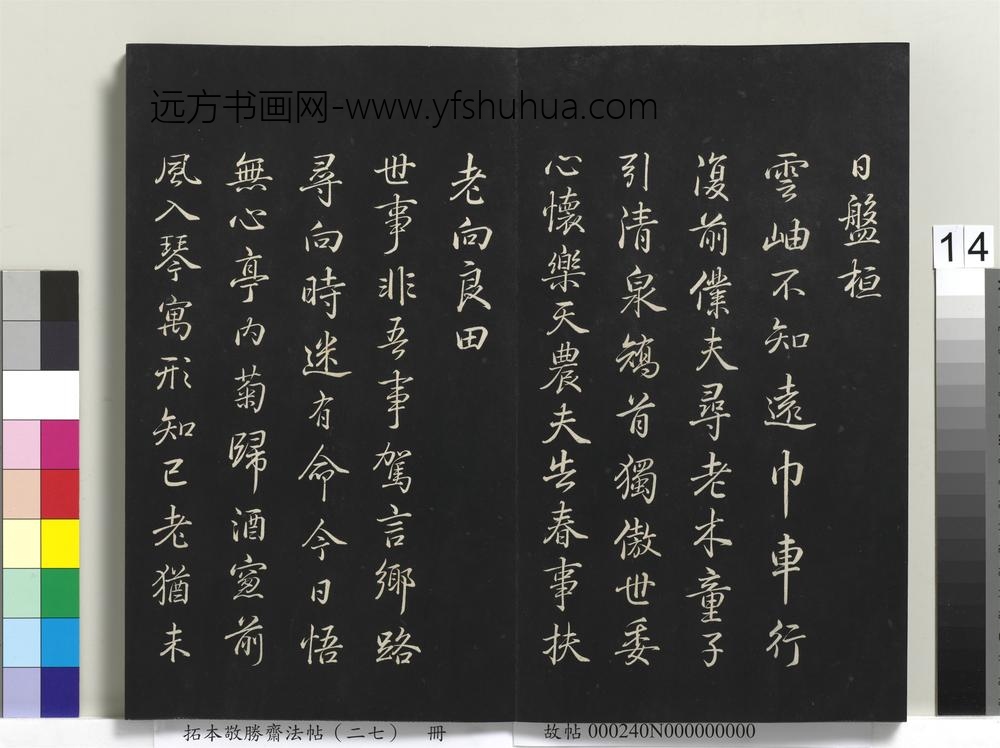 远方书画网-www.yfshuhua.com
日盤桓
雲岫不知遠巾車行
復前僕夫尋老木童子
引清泉矯首獨傲世委
心懷樂天農夫告春事扶
老向良田
世事非吾事駕言鄉路
尋向時迷有命今日悟
無心亭內菊歸酒窓前
風入琴寓形知已老猶未
14
拓本敬勝齋法帖(二七) 冊
故帖 000240N000000000